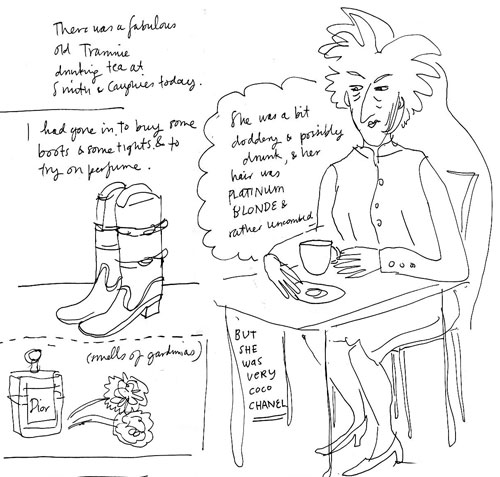 There was a fabulous
old Trannie
drinking tea at
Smith & Caugheys today.
I had gone in to buy some
boots & some tights & to
try on perfume.
(smells of gardenias)
Dior
She was a bit
doddery & possibly
drunk, & her
hair was
PLATINUM
BLONDE &
rather uncombed
BUT
SHE
WAS
VERY
COCO
CHANEL